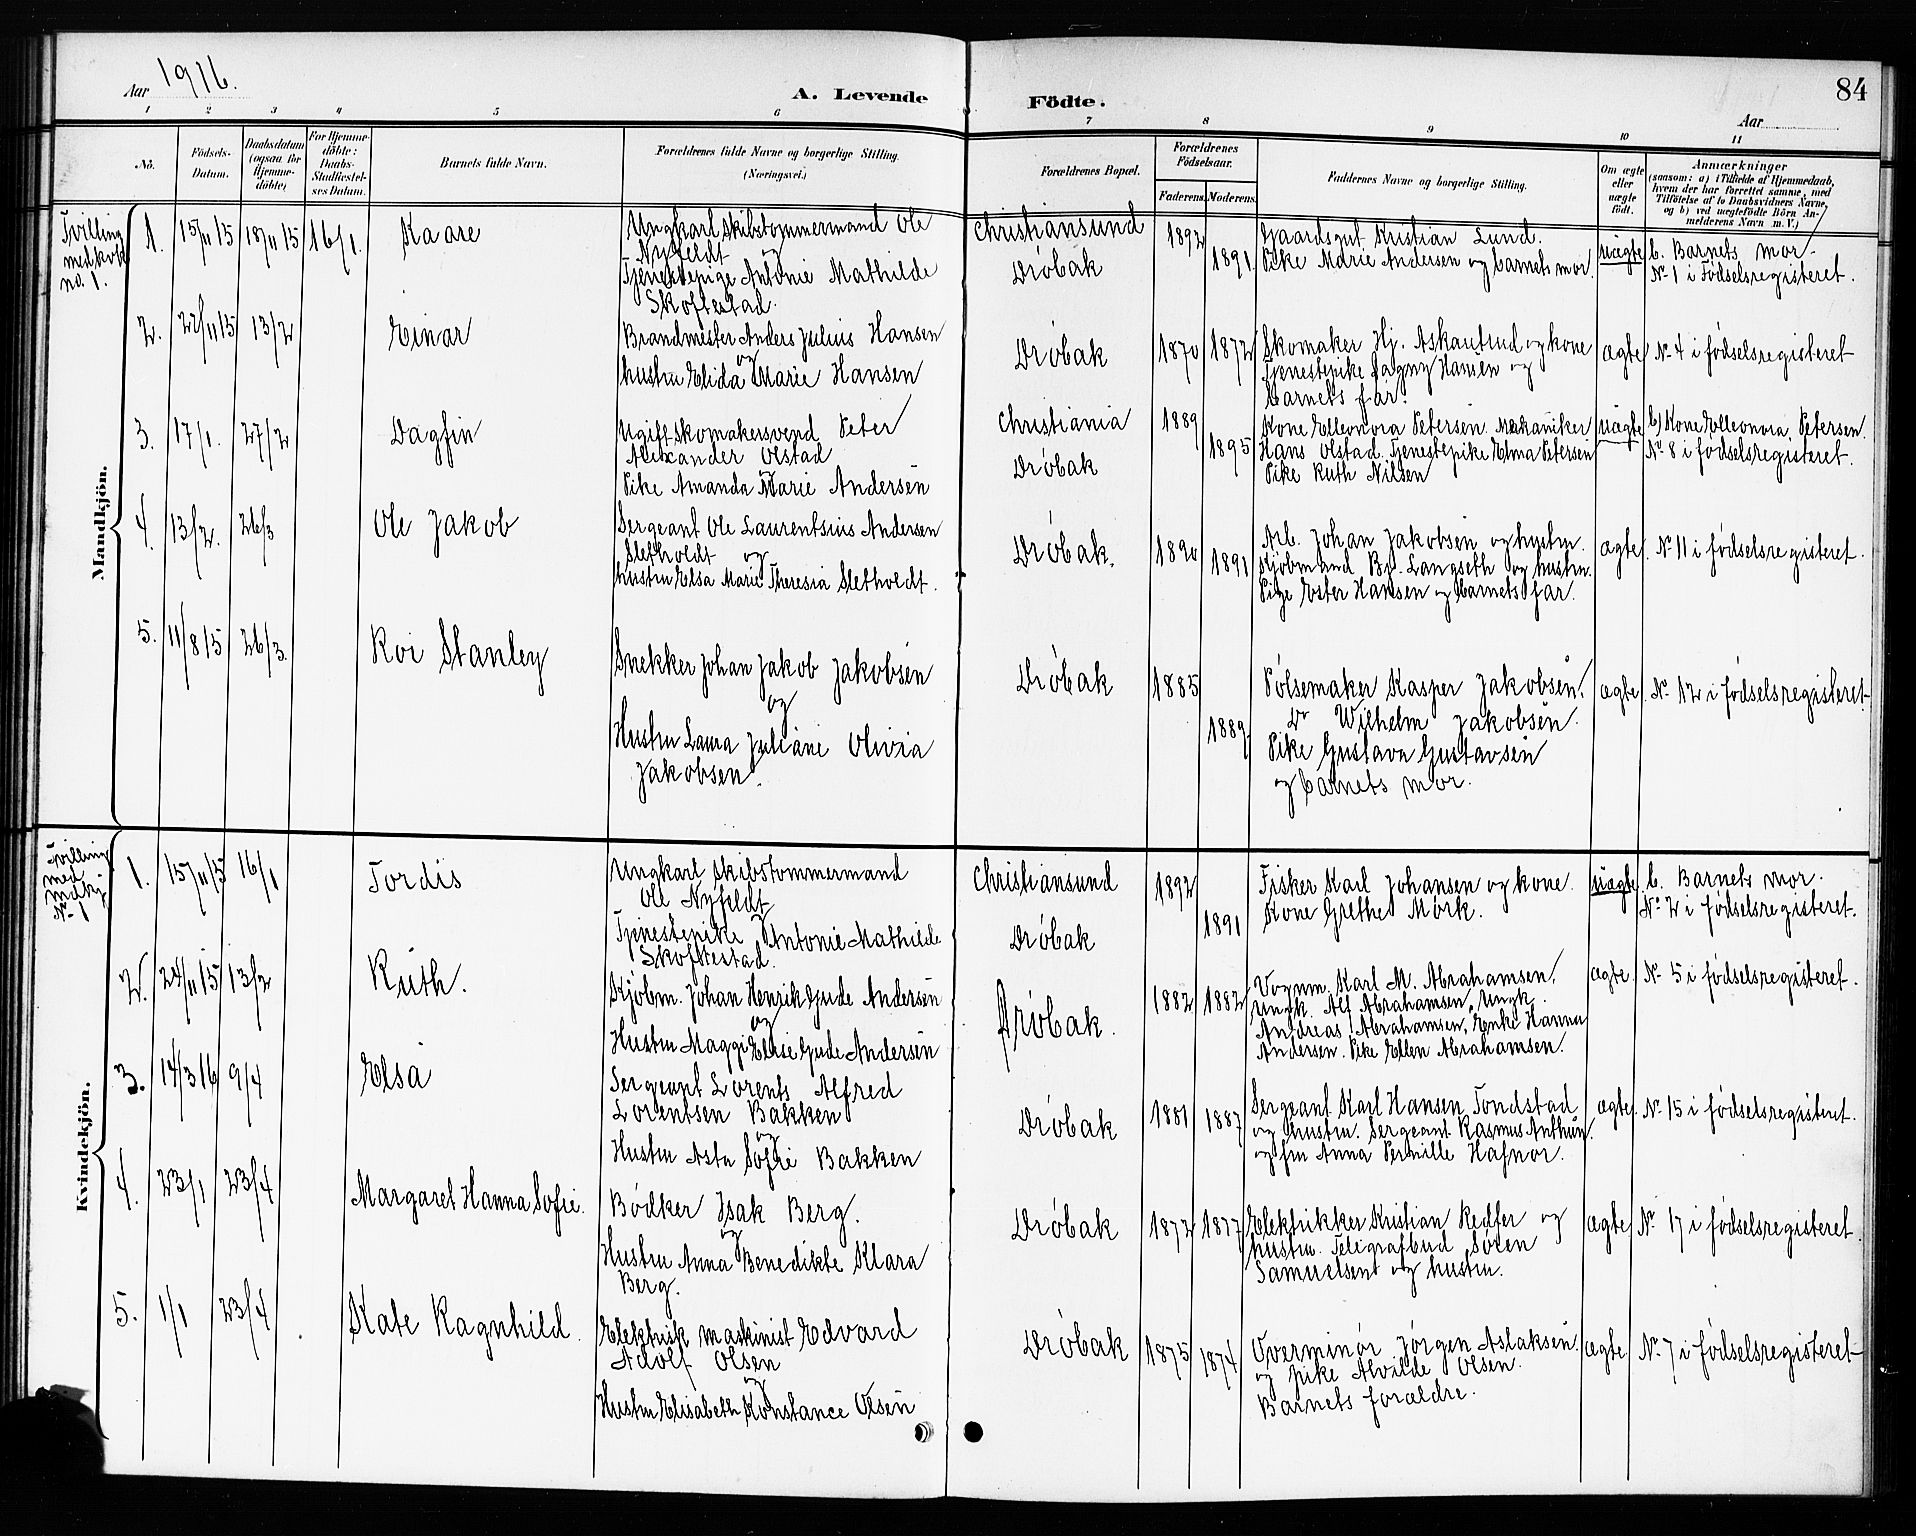 Aar 1916.
A. Levende
Födte.
84
Aar
1 2 3 4 5 6 7 8 9 10 11
No.
Födsels-
Datum.
Daabsdatum
(ogsaa for
Hjemme-
döbte)
For Hjemme-
döbte:
Daabs-
Stadfæstel-
ses Datum.
Barnets fulde Navn.
Forældrenes fulde Navne og borgerlige Stilling.
(Næringsvei.)
Forældrenes Bopæl.
Forældrenes
Födselsaar.
Faderens. Moderens.
Faddernes Navne og borgerlige Stilling.
Om ægte
eller
uægte
födt.
Anmærkninger
(saasom: a) i Tilfælde af Hjemmedaab,
hvem der har forrettet samme, med
Tilföielse af to Daabsvidners Navne,
og b) ved uægtefödte Börn An-
melderens Navn m. V.)
Mandkjön.
Tvilling
med kvk
no. 1.
1. 15/11 15 18/11 15 16/1. Kaare
Ungkarl Skibstømmermand Ole
Nyfeldt
og
Tjenestepige Antonie Mathilde
Skoftestad.
Christiansund
Dröbak
1892
1891
Gaardsgut Kristian Lund.
Pike Marie Andersen og barnets mor.
uægte
b. Barnets mor.
No 1 i Fødselsregisteret.
2. 22/11 15 13/2 Einar
Brandmester Anders Julius Hansen
og
hustru Elida Marie Hansen
Dröbak
1870 1872
Skomaker Hj. Askautrud og kone
Tjenestepike Dagny Hansen og
barnets far.
ægte
No 4 i fødselsregisteret
3. 17/1. 27/2 Dagfin
Ugift skomakersvend Peter
Alexander Olstad
og
Pike Amanda Marie Andersen
Christiania
Dröbak
1889
1895
Kone Elleonora Petersen. Mekaniker
Hans Olstad. Tjenestepike Elma Petersen
Pike Ruth Nilsen
uægte
b) Kone Elleonora Petersen.
No 8 i fødselsregisteret.
4. 13/2. 26/3 Ole Jakob
Sergeant Ole Laurentsius Andersen
Sletholdt og
hustru Elsa Marie Theresia Sletholdt.
Dröbak.
1890
1891
Arb. Johan Jakobsen og hustru.
Kjøbmand Br. Langseth og hustru.
Pige Ester Hansen og barnets far.
ægte
No 11 i fødselsregisteret.
5. 11/8 15 26/3. Roi Stanley
Snekker Johan Jakob Jakobsen
og
Hustru Laura Juliane Olivia
Jakobsen.
Dröbak
1885
1889
Pølsemaker Kasper Jakobsen.
Do Wilhelm Jakobsen.
Pike Gustava Gustavsen
og barnets mor.
ægte
No 12 i fødselsregisteret
Kvindekjön.
Tvilling
med
mdkj
No 1
1. 15/11 15 16/1 Tordis
Ungkarl Skibstømmermand
Ole Nyfeldt
og
Tjenestepike Antonie Mathilde
Skoftestad.
Christiansund
Dröbak
1892
1891
Fisker Karl Johansen og kone.
Kone Grethe Mørk.
uægte
b. Barnets mor.
No 2 i fødselsregisteret.
2. 24/11 15 13/2 Ruth.
Kjøbm. Johan Henrik Gude Andersen
og
Hustru Maggi Elise Gude Andersen
Dröbak.
1882 1882
Vognm. Karl M. Abrahamsen.
Ungk. Alf Abrahamsen, Ungk.
Andreas Abrahamsen, Enke Hanna
Andersen. Pike Ellen Abrahamsen.
ægte
No 5 i fødselsregisteret.
3. 14/3 16 9/4 Elsa
Sergeant Lorents Alfred
Lorentsen Bakken
og
Hustru Asta Sofie Bakken
Dröbak
1881 1887
Sergeant Karl Hansen Tondstad
og hustru. Sergeant Rasmus Anthun.
og fru Anna Pernille Hafnor.
ægte.
No 15 i fødselsregisteret.
4. 23/1 23/4 Margaret Hanna Sofie.
Bødker Isak Berg.
og
Hustru Anna Benedikte Klara
Berg.
Dröbak
1872 1877
Elektrikker Kristian Redfer og
hustru. Teligrafbud Søren
Samuelsen og hustru.
ægte
No 17 i fødselsregisteret.
5. 1/1 23/4 Kate Ragnhild.
Elektrisk maskinist Edvard
Adolf Olsen
og
Hustru Elisabeth Konstance Olsen
Dröbak
1875 1874
Overminør Jørgen Aslaksen.
og pike Alvilde Olsen.
Barnets forældre.
ægte
No 7 i fødselsregisteret